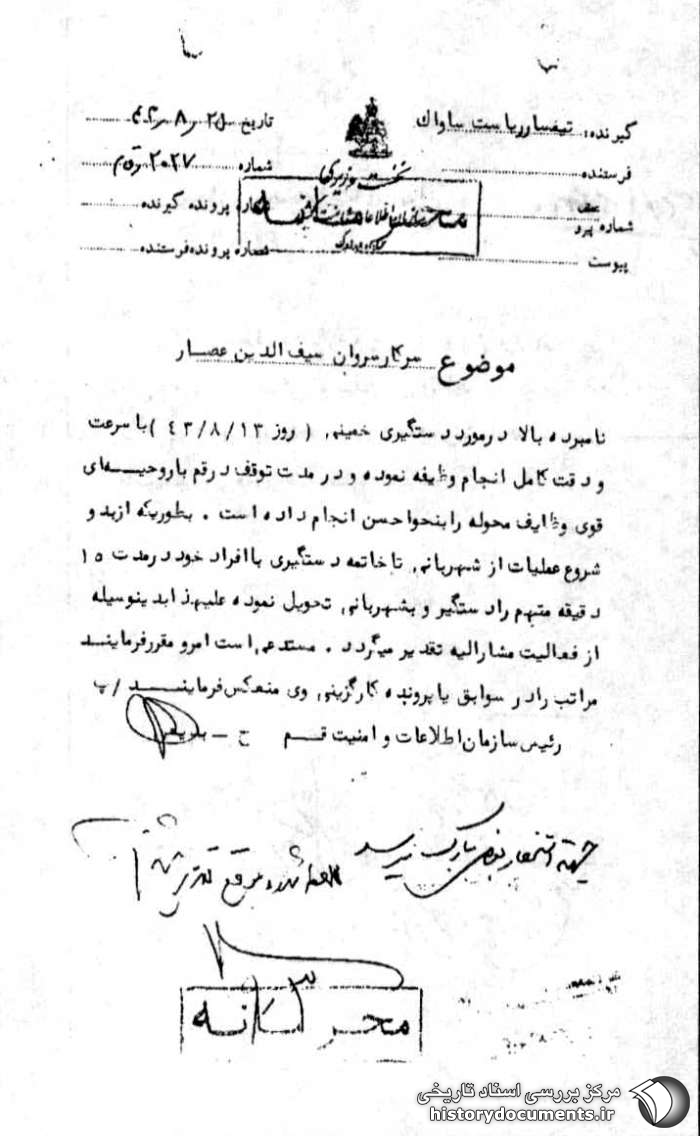 گیرنده: تیمسار ریاست ساواک
تاریخ ۲۵ر۸ر۴۳
فرستنده
شماره ۲۰۲۷
نخست وزیری
شماره پیرو
شماره پرونده گیرنده
پیوست
شماره پرونده فرستنده
موضوع سرکار سروان سیف الدین عصار
نامبرده بالا در مورد دستگیری خمینی ( روز ۴۳/۸/۱۳ ) با سرعت
و دقت کامل انجام وظیفه نموده و در مدت توقف در قم با روحیه‌ای
قوی وظایف محوله را بنحو احسن انجام داده است . بطوریکه از بدو
شروع عملیات از شهربانی تا خاتمه دستگیری با افراد خود در مدت ۱۵
دقیقه متهم را دستگیر و بشهربانی تحویل نموده علیهذا بدینوسیله
از فعالیت مشارالیه تقدیر میگردد . مستدعی است امر و مقرر فرمایند
مراتب را در سوابق یا پرونده کارگزینی وی منعکس فرمایند /پ
رئیس سازمان اطلاعات و امنیت قم ح -
محرمانه
مرکز بررسی اسناد تاریخی
historydocuments.ir